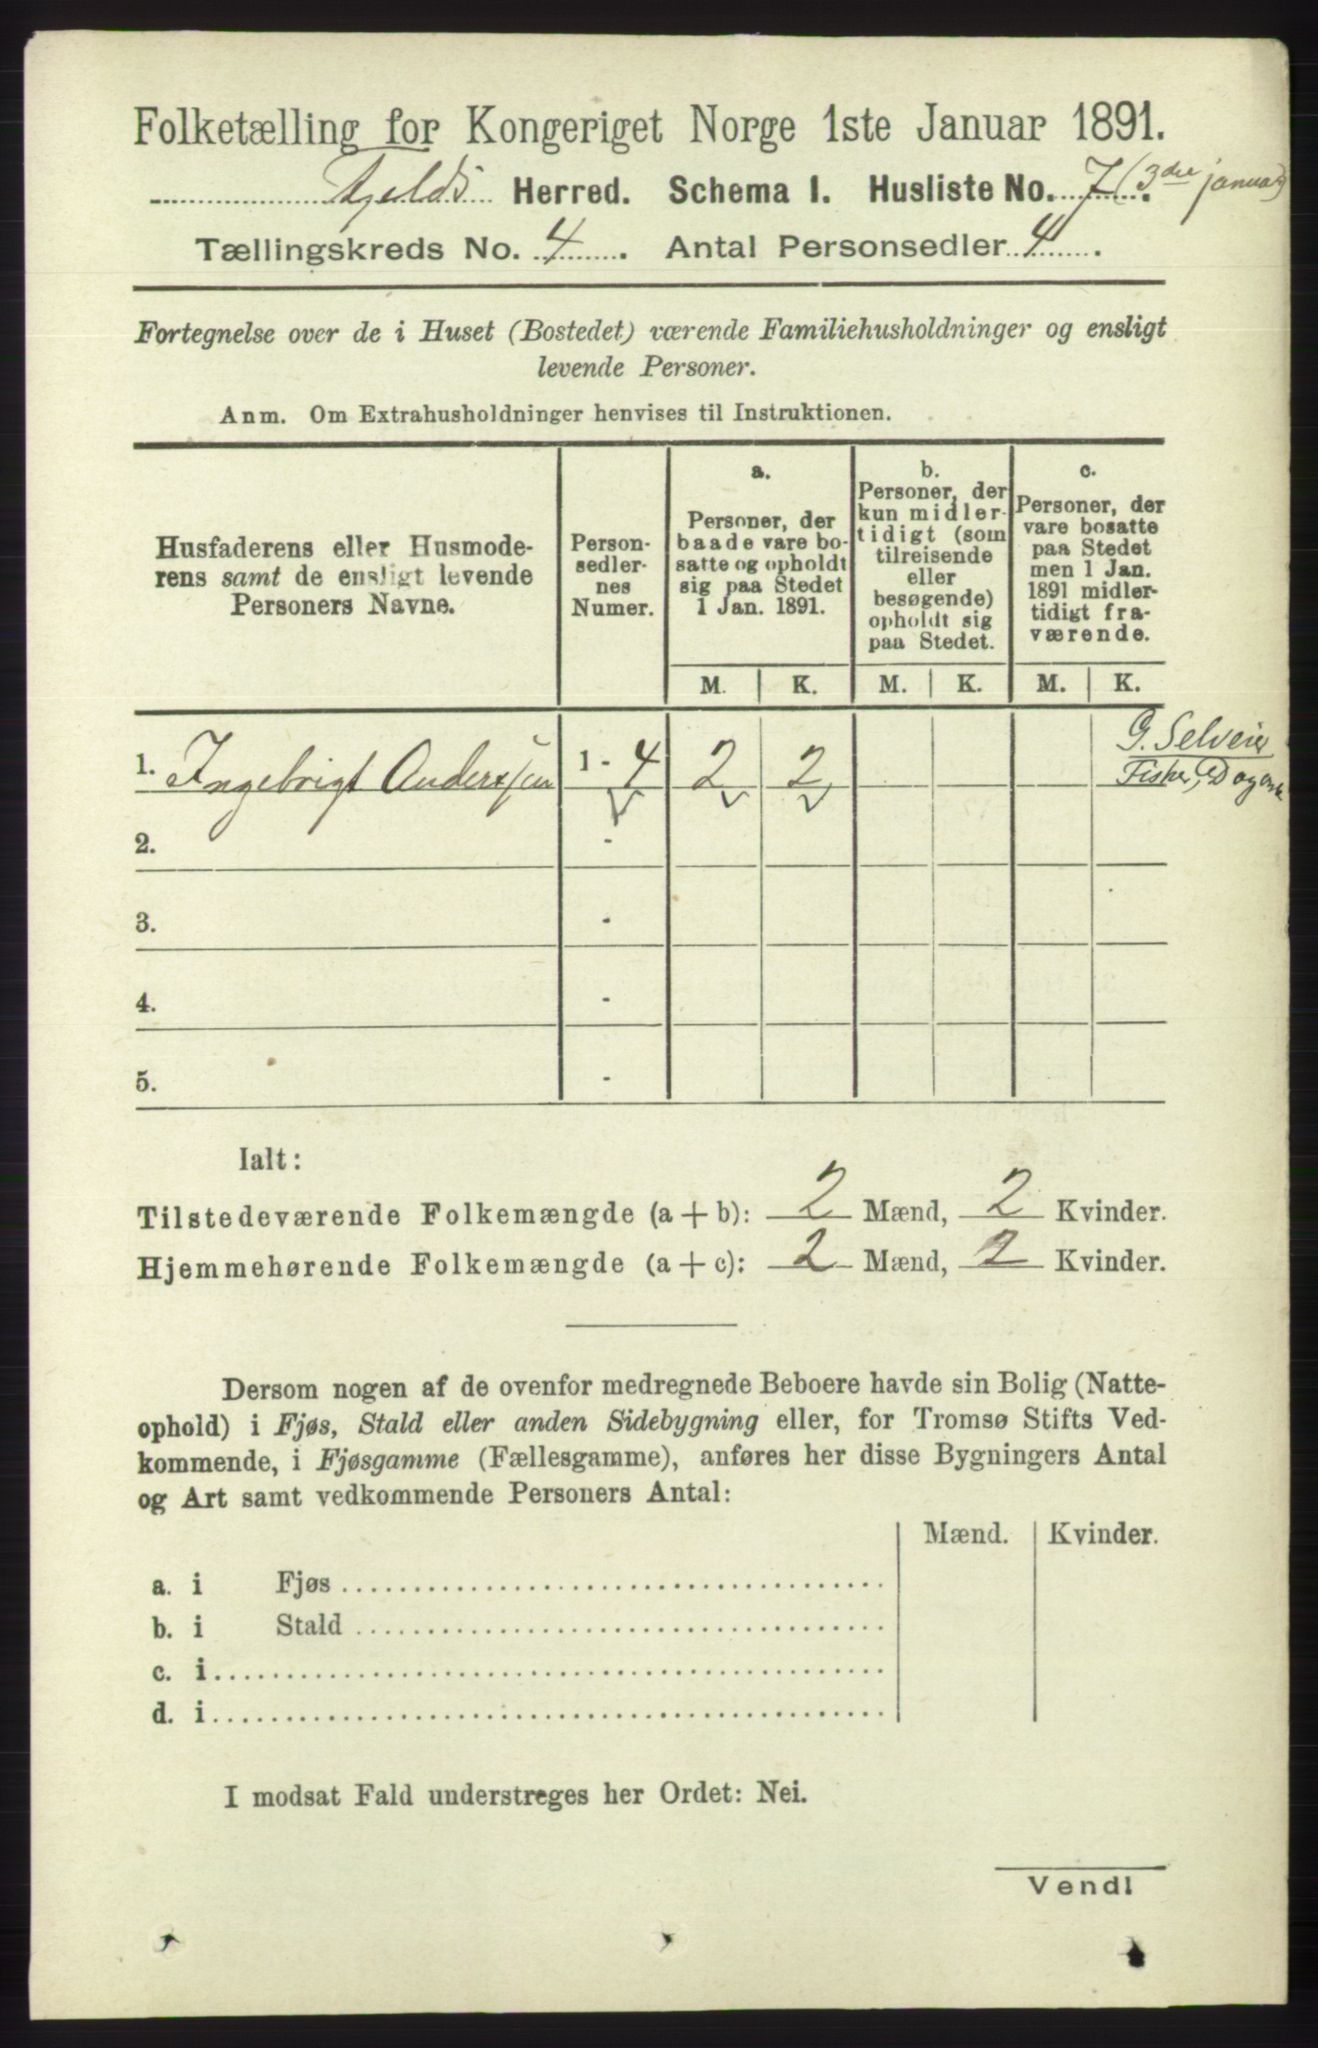 Folketælling for Kongeriget Norge 1ste Januar 1891.
Kjelds Herred. Schema I. Husliste No. 7 (3die januar)
Tællingskreds No. 4. Antal Personsedler 4.
Fortegnelse over de i Huset (Bostedet) værende Familiehusholdninger og ensligt
levende Personer.
Anm. Om Extrahusholdninger henvises til Instruktionen.
Husfaderens eller Husmode-
rens samt de ensligt levende
Personers Navne.
Person-
sedler-
nes
Numer.
a.
Personer, der
baade vare bo-
satte og opholdt
sig paa Stedet
1 Jan. 1891.
b.
Personer, der
kun midler-
tidigt (som
tilreisende
eller
besøgende)
opholdt sig
paa Stedet.
c.
Personer, der
vare bosatte
paa Stedet
men 1 Jan.
1891 midler-
tidigt fra-
værende.
M. K. M. K. M. K.
1. Ingebrigt Anderssen 1 - 4 2 2
G. Selveier
Fisker,
2. -
3. -
4. -
5. -
Ialt:
Tilstedeværende Folkemængde (a + b): 2 Mænd, 2 Kvinder.
Hjemmehørende Folkemængde (a + c): 2 Mænd, 2 Kvinder.
Dersom nogen af de ovenfor medregnede Beboere havde sin Bolig (Natte-
ophold) i Fjøs, Stald eller anden Sidebygning eller, for Tromsø Stifts Ved-
kommende, i Fjøsgamme (Fællesgamme), anføres her disse Bygningers Antal
og Art samt vedkommende Personers Antal:
Mænd. Kvinder.
a. i Fjøs
b. i Stald
c. i
d. i
I modsat Fald understreges her Ordet: Nei.
Vend!